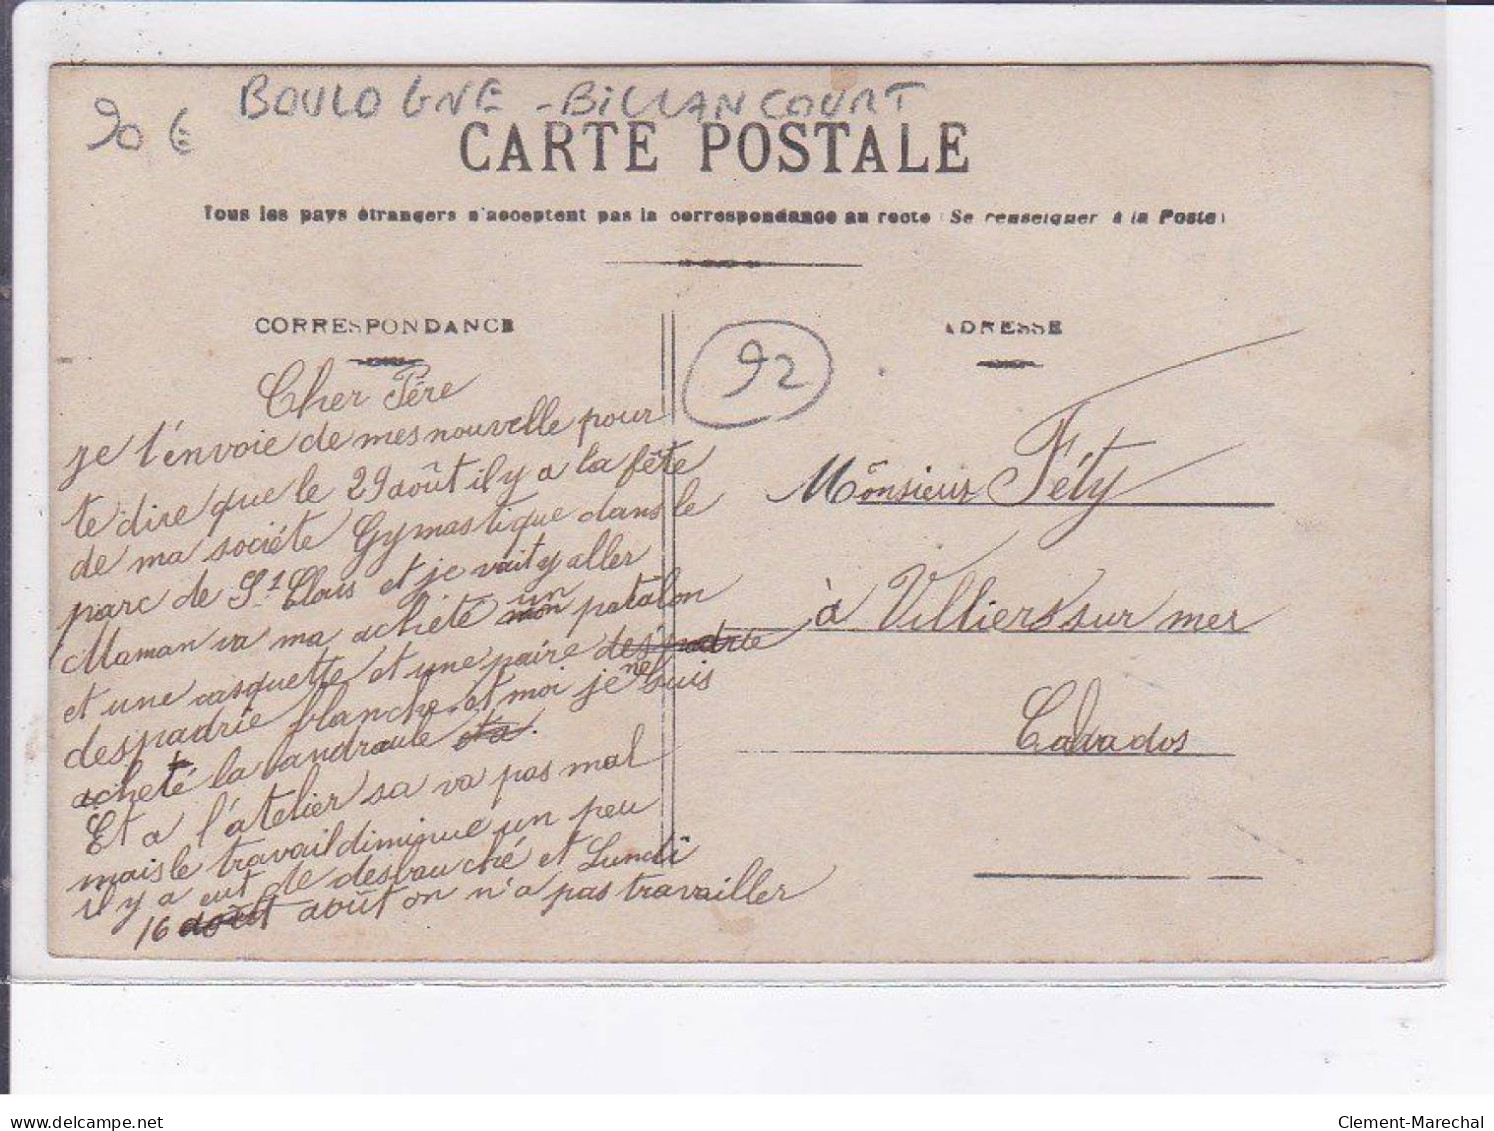 90 €
BOULOGNE - BILLANCOURT
CARTE POSTALE
Tous les pays étrangers n'acceptent pas la correspondance au recto (Se renseigner à la Poste)
CORRESPONDANCE
Cher Père
je t'envoie de mes nouvelle pour
te dire que le 29 août il y a la fête
de ma sociéte Gymastique dans le
parc de St Clous et je vait y aller
Maman va ma acheté mon un patalon
et une casquette et une paire des padrie
despadrie blanche et moi je ne suis
acheté la bandraule et a.
Et a l'atelier sa va pas mal
mais le travail diminue un peu
il y a eut de desbauché et Lundi
16 août août on n'a pas travailler
92
ADRESSE
Monsieur Féty
à Villiers sur mer
Calvados
delcampe.net
Clement-Marechal